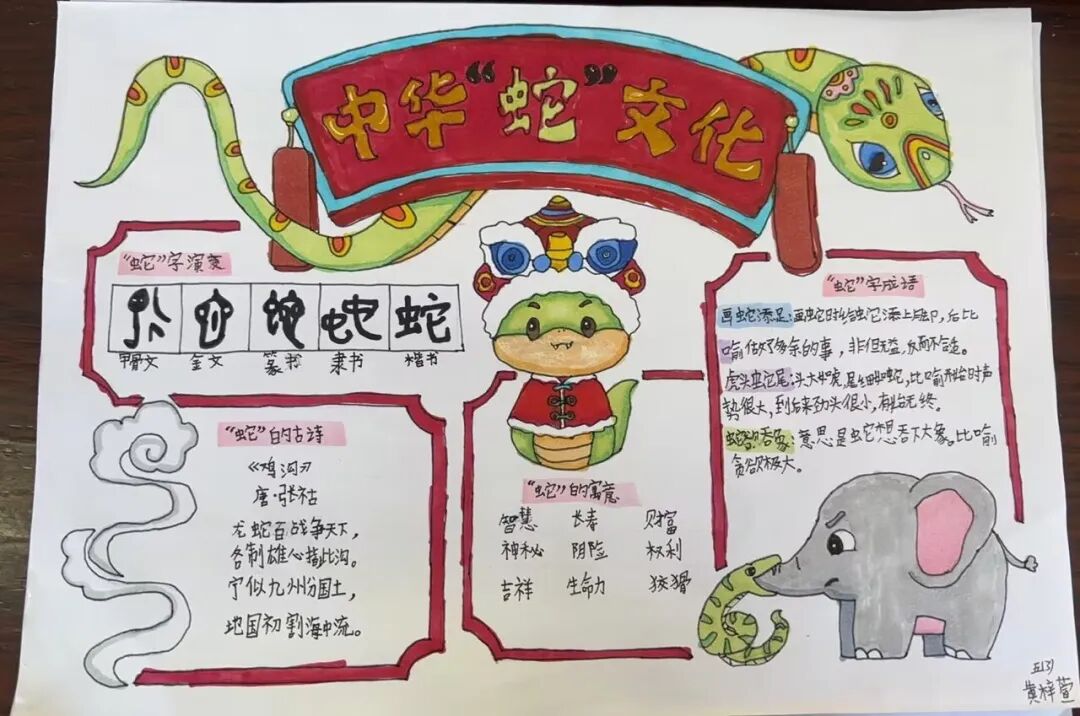 中华“蛇”文化
“蛇”字演变
蛇
甲骨文 金文 篆书 隶书 楷书
“蛇”的古诗
《鸿沟》
唐·张祜
龙蛇百战争天下，
各制雄心指此沟。
宁似九州分国土，
地图初割海中流。
“蛇”的寓意
智慧 长寿 财富
神秘 阴险 权利
吉祥 生命力 狡猾
“蛇”字成语
画蛇添足：画蛇时给蛇添上脚，后比
喻做了多余的事，非但无益，反而不合适。
虎头蛇尾：头大如虎，尾细如蛇，比喻开始时声
势很大，到后来劲头很小，有始无终。
蛇欲吞象：意思是蛇想吞下大象。比喻
贪欲极大。
五(3)
黄梓萱